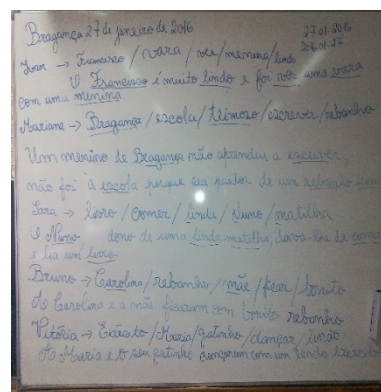 Bragança 27 de janeiro de 2016
27.01.2016
2016.01.27
Ivan → Francisco / vara / ver / menina / lindo
O Francisco é muito lindo e foi ver uma vara
com uma menina.
Mariana → Bragança / escola / teimoso / escrever / rebanho
Um menino de Bragança não aprendeu a escrever,
não foi à escola porque era pastor de um rebanho
Sara → livro / comer / linda / Nuno / matilha
O Nuno dono de uma linda matilha, dava-lhe de comer
e lia um livro
Bruno → Carolina / rebanho / mãe / ficar / bonito
A Carolina e a mãe ficaram com bonito rebanho
Vitória → Exército / Maria / gatinho / dançar / lindo
A Maria e o seu gatinho dançaram com um lindo exército